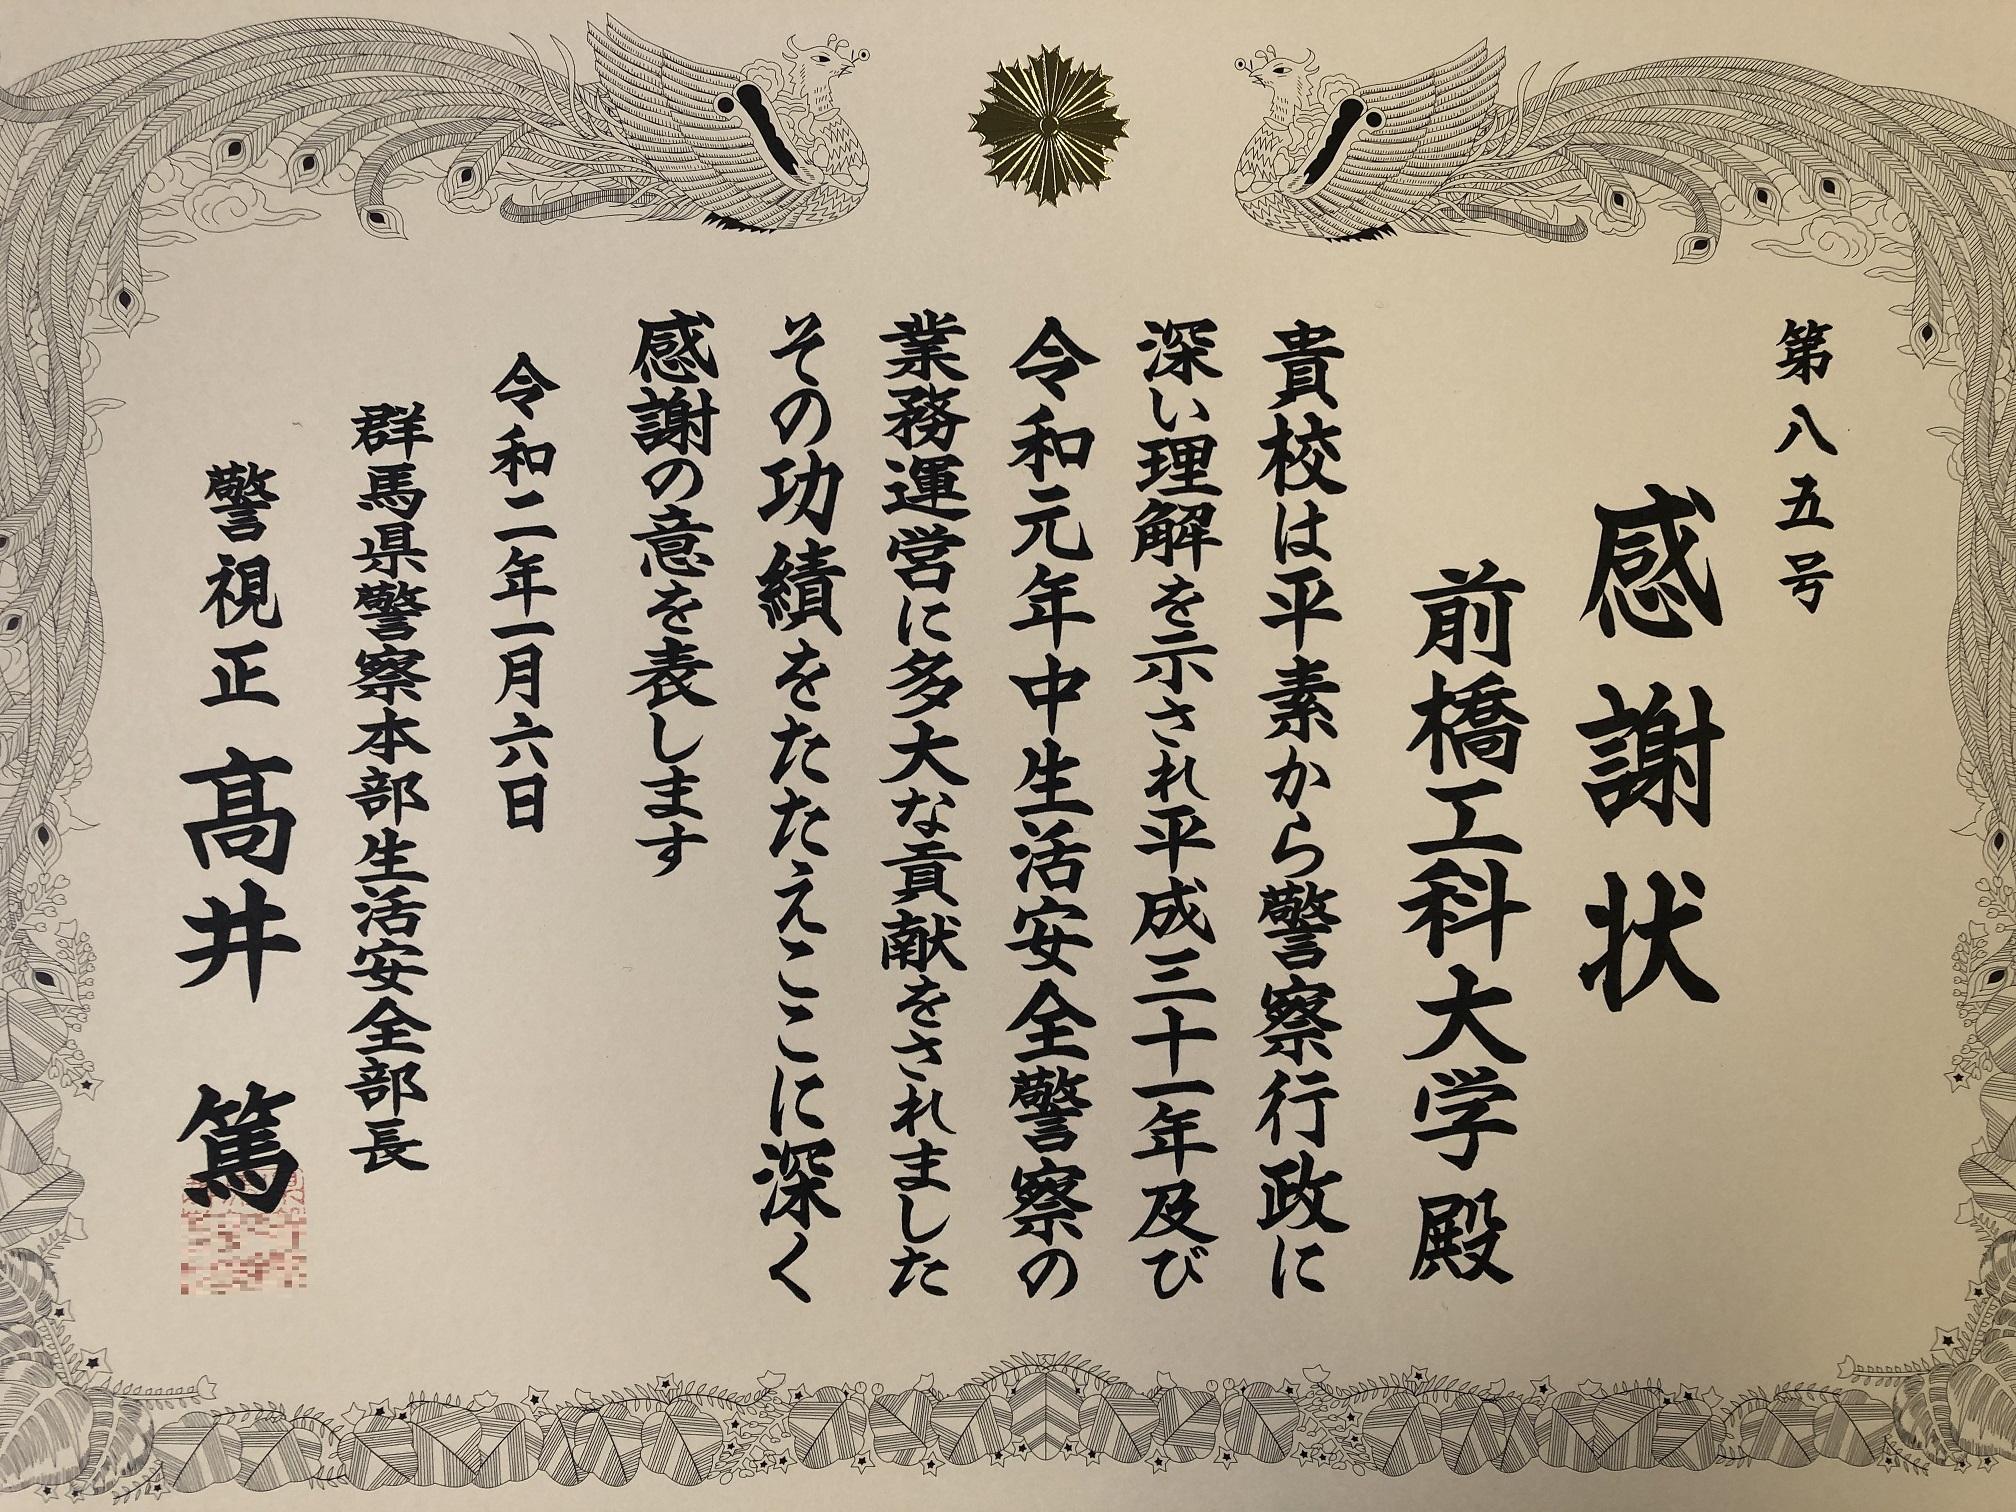 第八五号
感謝状
前橋工科大学殿
貴校は平素から警察行政に
深い理解を示され平成三十一年及び
令和元年中生活安全警察の
業務運営に多大な貢献をされました
その功績をたたえここに深く
感謝の意を表します
令和二年一月六日
群馬県警察本部生活安全部長
警視正 髙井 篤